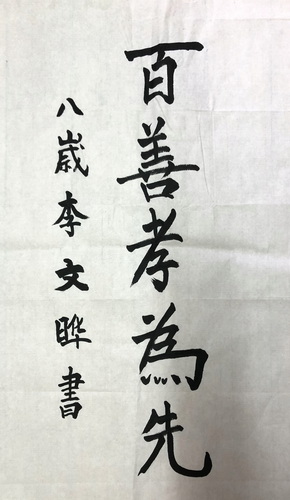 百善孝為先
八歲李文晔書